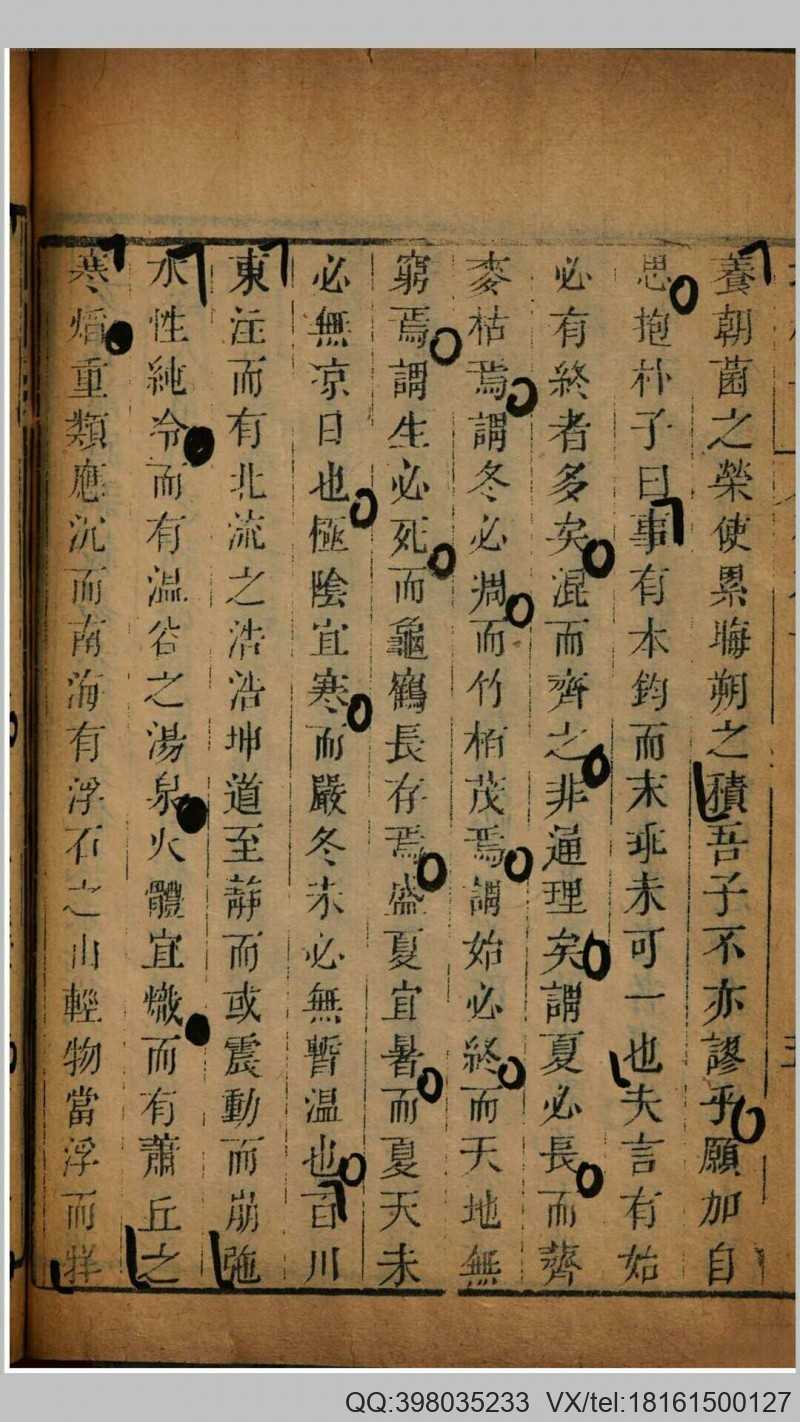 養朝菌之榮使累晦朔之積吾子不亦謬乎願加自
思抱朴子曰事有本鈞而末乖未可一也夫言有始
必有終者多矣混而齊之非通理矣謂夏必長而薺
麥枯焉謂冬必凋而竹栢茂焉謂始必終而天地無
窮焉謂生必死而龜鶴長存焉盛夏宜暑而夏天未
必無凉日也極陰宜寒而嚴冬未必無暫温也百川
東注而有北流之浩浩坤道至靜而或震動而崩弛
水性純冷而有温谷之湯泉火體宜熾而有蕭丘之
寒熖重類應沉而南海有浮石之山輕物當浮而牂
QQ:398035233 VX/tel:18161500127